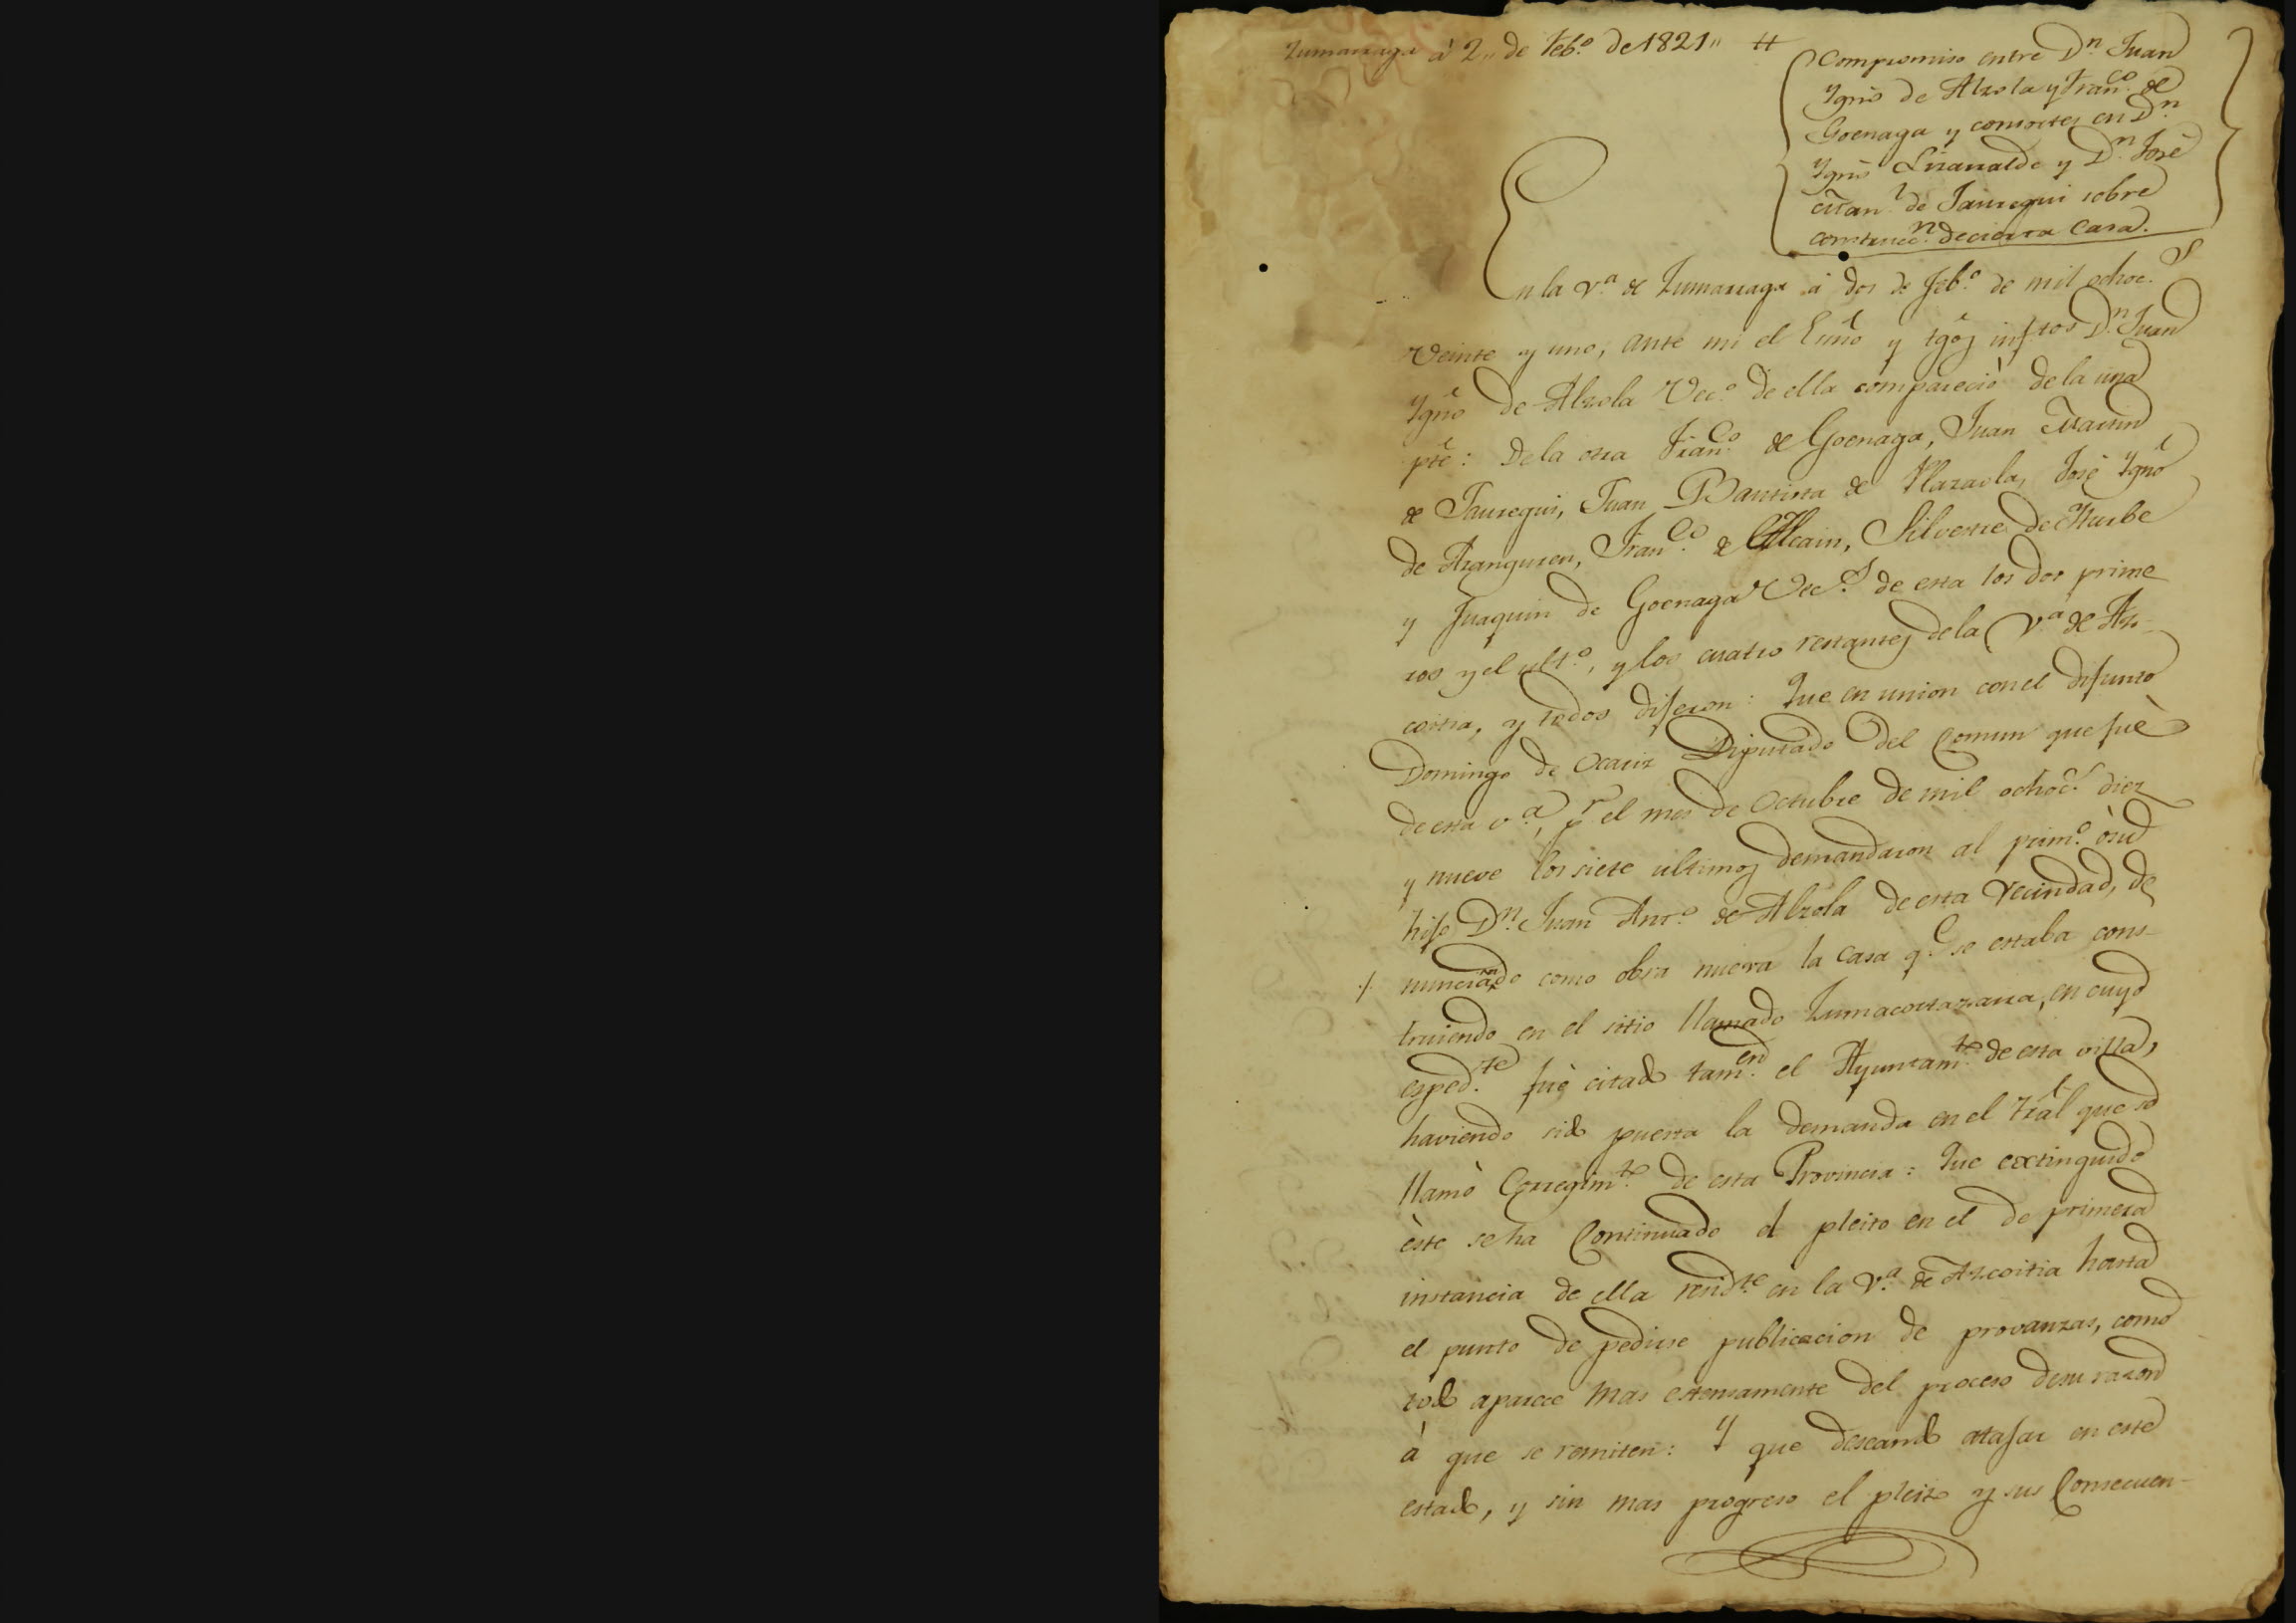 Zumarraga à 2,, de Feb.º de 1821,, #
Compromiso entre Dn. Juan
Ygnº de Alzola y Franco. de
Goenaga y consortes en Dn.
Ygnº Lizarralde y Dn. José
Man.l de Jauregui sobre
construccn. de cierta Casa.
En la V.ª de Zumarraga à dos de Feb.º de mil ochoc.s
Veinte y uno, ante mi el Essnõ y tgõs infrros Dn. Juan
Ygnõ de Alzola Vec.º de ella compareciò de la una
pte: De la otra Franco. de Goenaga, Juan Martin
de Jauregui, Juan Bautista de Plazaola, José Ygnõ
de Aranguren, Franco. de Alcain, Silvestre de Yturbe
y Juaquin de Goenaga Vec.s de esta los dos prime
ros y el ult.º, y los cuatro restantes de la V.ª de Az-
coitia, y todos dijeron: Que en union con el difunto
Domingo de Ocariz Diputado del Comun que fuè
de esta v.ª, pr el mes de Octubre de mil ochoc.s diez
y nueve los siete ultimos demandaron al prim.º ò su
hijo Dn. Juan Ant.º de Alzola de esta Vecindad, de
nunciando como obra nueva la Casa q.e se estaba cons-
truiendo en el sitio llamado Zumacortazarra, en cuyo
esped.te fuè citado tam.en el Ayuntam.to de esta villa,
haviendo sido puesta la demanda en el Tral que se
llamò Corregim.to de esta Provincia: Que extinguido
èste se ha Continuado el pleito en el de primera
instancia de ella resid.te en la V.ª de Azcoitia hasta
el punto de pedirse publicacion de provanzas, como
todo aparece mas estensamente del proceso de su razon
à que se remiten: Y que deseando atajar en este
estado, y sin mas progreso el pleito y sus Consecuen-